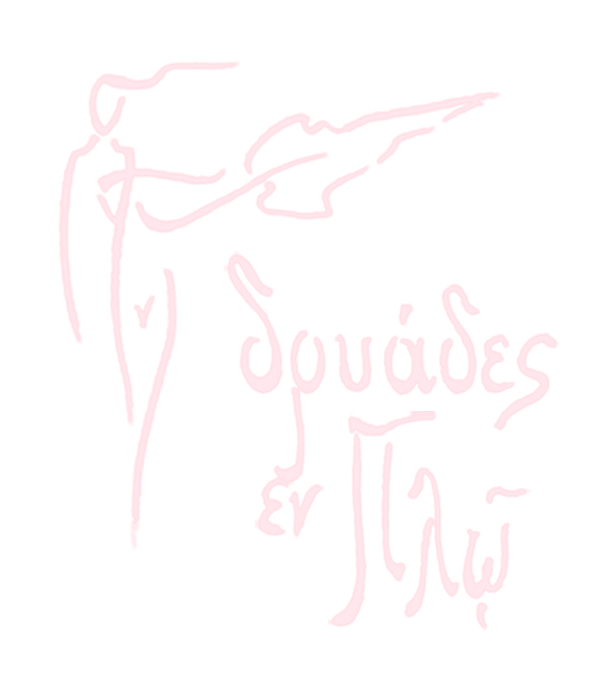 δρυάδες
ἐν
Πλῷ